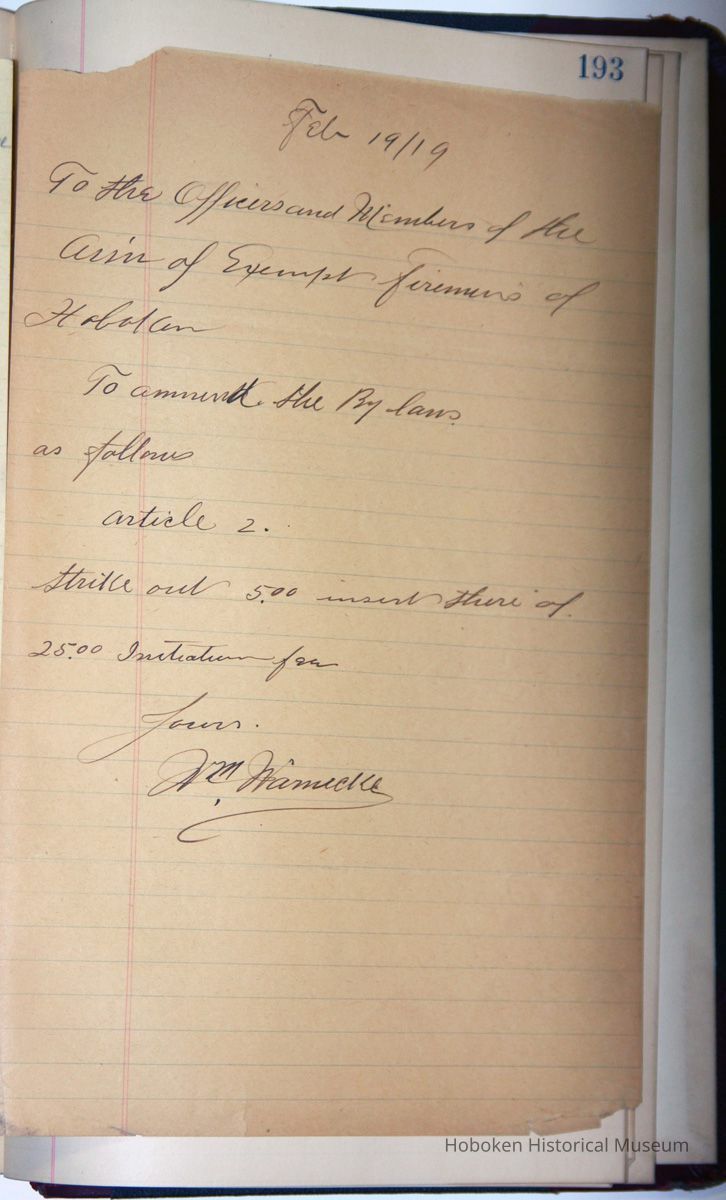 193
Feb 19/19
To the Officers and Members of the
Ass'n of Exempt Firemen's of
Hoboken
To ammend the By laws
as follows
article 2.
Strike out 5.00 insert there of
25.00 Initiation fee
Yours.
Wm Warnecke
Hoboken Historical Museum